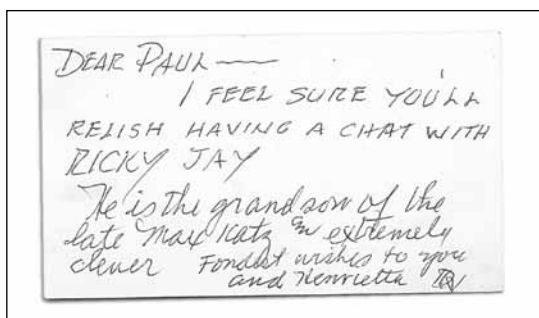 DEAR PAUL —
I FEEL SURE YOU'LL
RELISH HAVING A CHAT WITH
RICKY JAY
He is the grandson of the
late Max Katz an extremely
clever Fondest wishes to you
and Henrietta